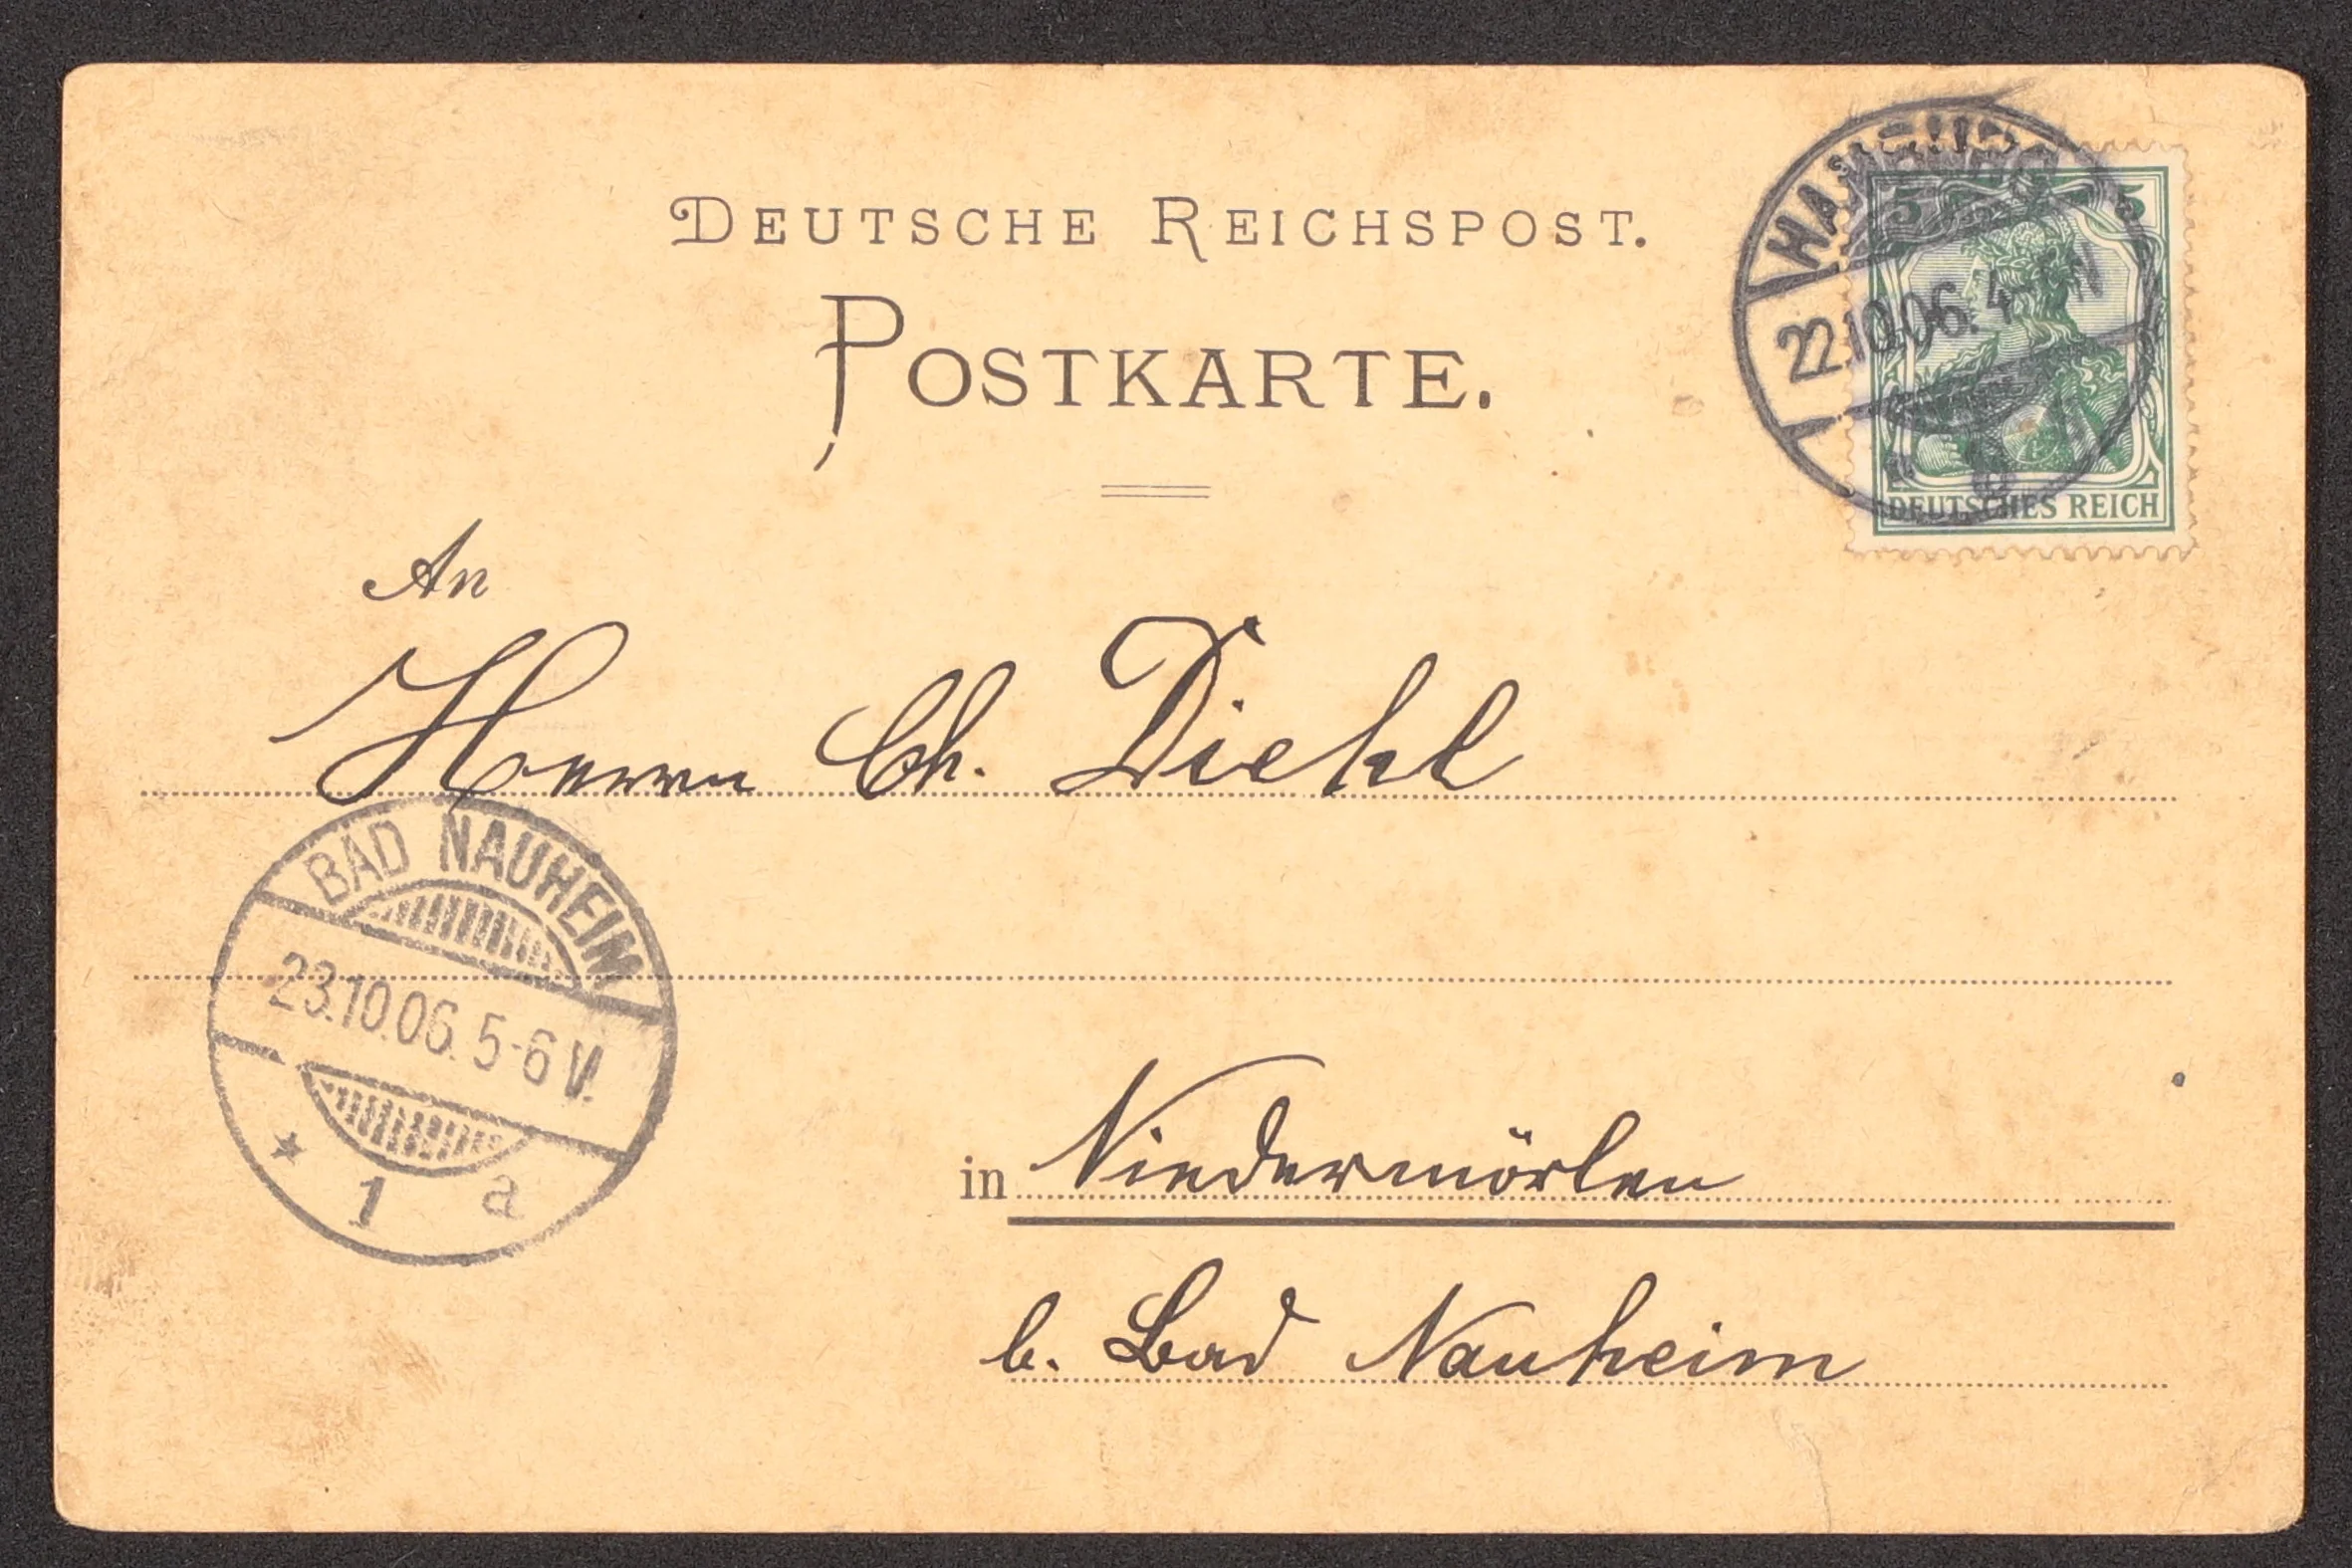 DEUTSCHE REICHSPOST.
POSTKARTE.
5 5
22.10.06. 4- N
DEUTSCHES REICH
An
Herrn Ch. Diehl
BAD NAUHEIM
23.10.06. 5-6 V.
* 1 a
in Niedermörlen
b. Bad Nauheim